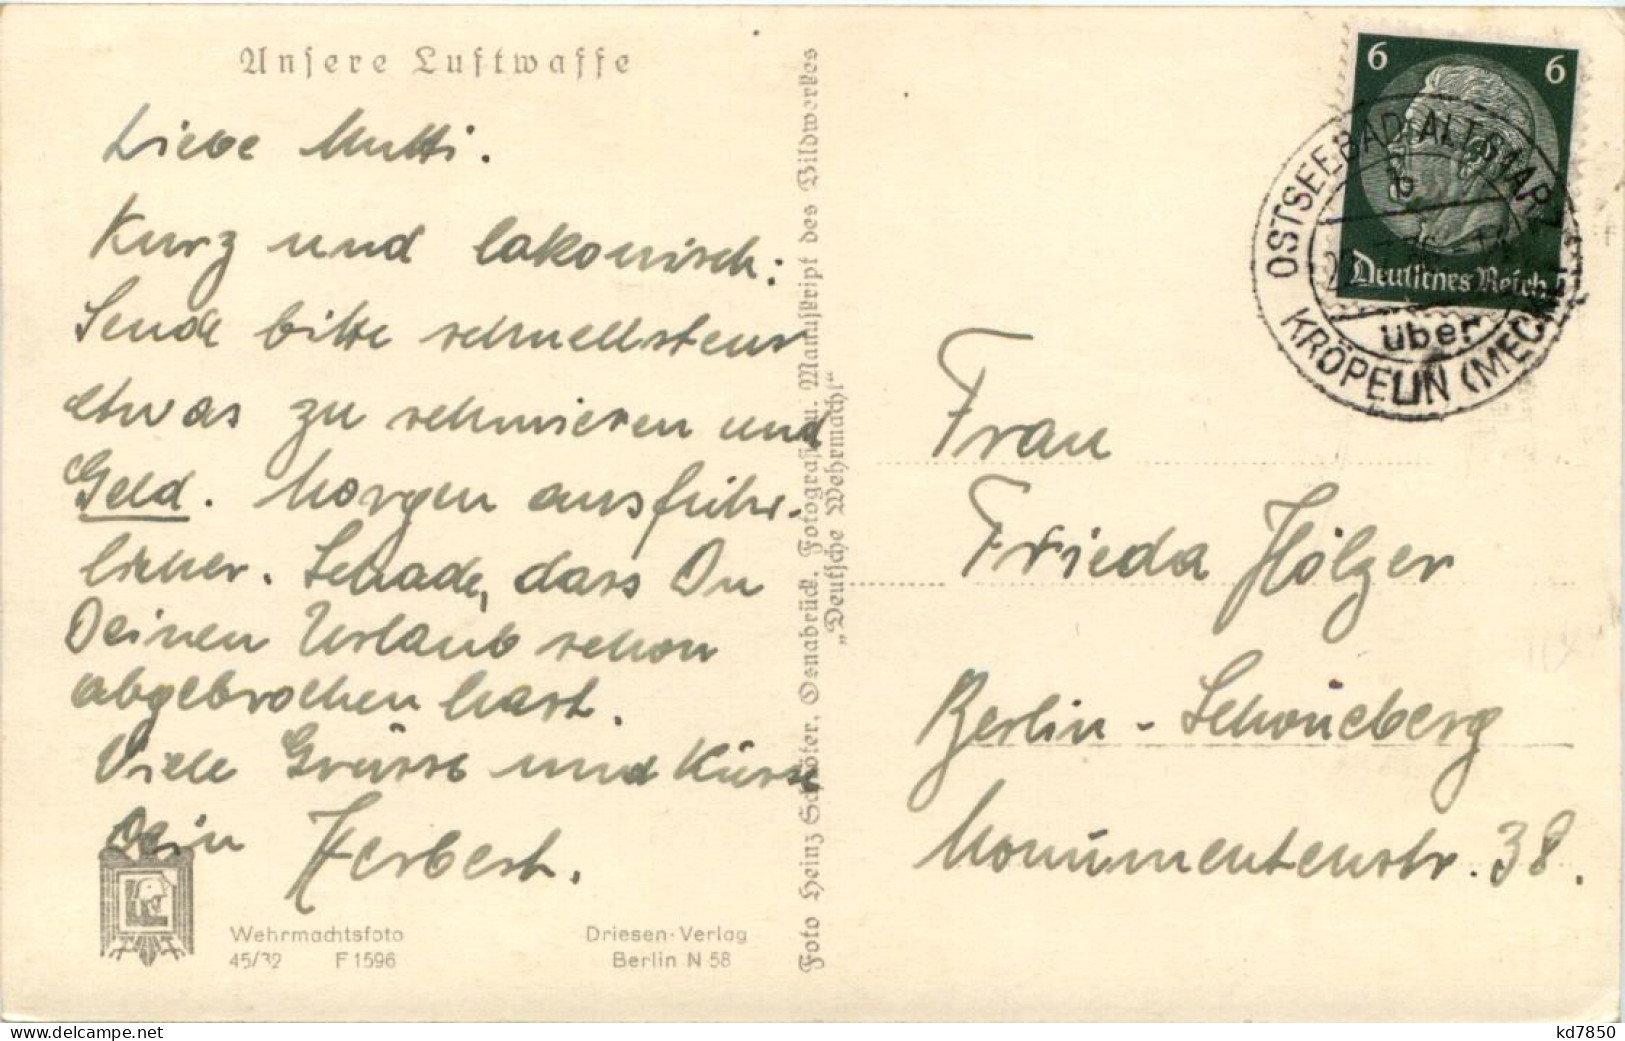 Unsere Luftwaffe
Liebe Mutti.
Kurz und lakonisch:
Sende bitte schnellstens
etwas zu schmieren und
Geld. Morgen ausführ-
licher. Schade, dass Du
Deinen Urlaub schon
abgebrochen hast.
Viele Grüsse und Küsse
Dein Herbert.
Wehrmachtsfoto
45/32 F 1596
Driesen-Verlag
Berlin N 58
Foto Heinz Schröter, Osnabrück. Fotograf u. Manuskript des Bildwerkes
„Deutsche Wehrmacht“
6 6
Deutsches Reich
OSTSEEBAD ALT GAARZ
b
über
KRÖPELIN (MECKL)
Frau
Frieda Hölzer
Berlin-Schöneberg
Monumentenstr. 38.
kd7850